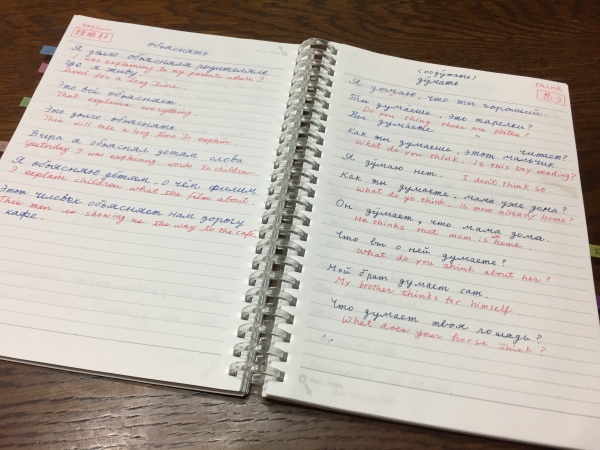 объяснять
Я долго объясняла родителям
где я живу.
I was explaining to my parents where I
lived for a long time.
Это всё объясняет.
That explains everything.
Это долго объяснять.
This will take a long time to explain.
Вчера я объяснял детям слова
Yesterday I was explaining words to children.
Я объясняю детям, о чём фильм
I explain children what the film about.
Этот человек объясняет нам дорогу
This man is showing us the way to the cafe.
кафе.
think
(подумать)
думать
思う
Я думаю, что ты хороший
Ты думаешь, это тарелки?
Do you thing these are plates?
Вы думаете
Как ты думаешь, этот мальчик читает?
What do you think, is this boy reading?
Я думаю нет. I don't think so
Как ты думаете, мама уже дома?
What do yo think, is mom already home?
Он думает, что мама дома.
He thinks that mom is home
Что вы о ней думаете?
What do you think about her?
Мой брат думает сам.
My brother thinks for himself.
Что думает твоя лошадь?
What does your horse think?